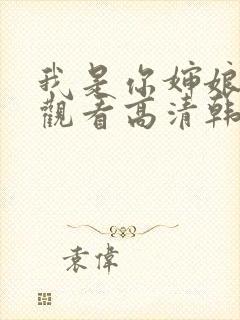 我是你婶娘
觀看高清韩
袁偉